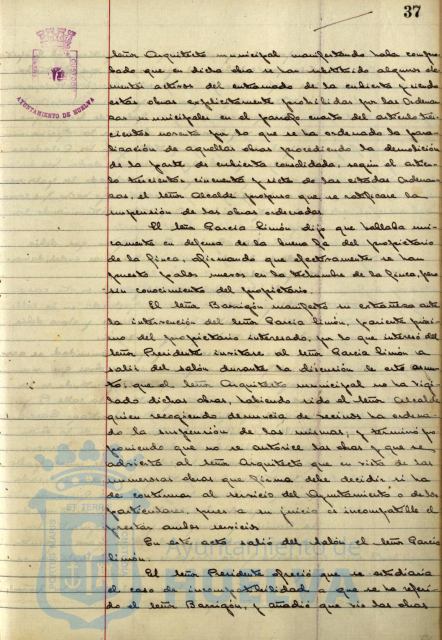 37
AYUNTAMIENTO DE HUELVA
señor Arquitecto municipal manifestando había compro-
bado que en dicha obra se han sustituido algunos ele-
mentos activos del entramado de la cubierta y siendo
estas obras explícitamente prohibidas por las Ordenan-
zas municipales en el párrafo cuarto del artículo tres-
cientos noventa por lo que se ha ordenado la para-
lización de aquellas obras procediendo la demolición
de la parte de cubierta consolidada, según el artícu-
lo trescientos cincuenta y siete de las citadas Ordenan-
zas, el señor Alcalde propuso que se ratificase la
suspensión de las obras ordenadas.
El señor García Limón dijo que hablaba úni-
camente en defensa de la buena fe del propietario
de la finca, afirmando que efectivamente se han
puesto palos nuevos en la techumbre de la finca, pero
sin conocimiento del propietario.
El señor Barrigón manifestó su extrañeza ante
la intervención del señor García Limón, pariente próxi-
mo del propietario interesado, por lo que interesó del
señor Presidente invitase al señor García Limón a
salir del salón durante la discusión de este asun-
to; que el señor Arquitecto municipal no ha vigi-
lado dichas obras, habiendo sido el señor Alcalde
quien recogiendo denuncia de vecinos ha ordena-
do la suspensión de las mismas; y terminó pro-
poniendo que no se autorice las obras y que se
advierta al señor Arquitecto que en vista de las
numerosas obras que firma debe decidir si ha
de continuar al servicio del Ayuntamiento o de los
particulares, pues a su juicio es incompatible el
prestar ambos servicios.
En este acto salió del salón el señor García
Limón.
El señor Presidente ofreció que se estudiaría
el caso de incompatibilidad a que se ha referi-
do el señor Barrigón, y añadió que sin las obras
PORTUS MARIS
ET TERRAE
Ayuntamiento de
HUELVA